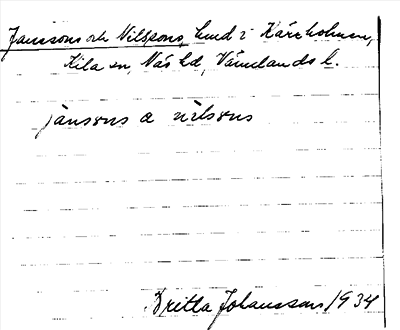 Janssons och Nilssons, hmd i Kärrholmen,
Kila sn, Näs hd, Värmlands l.
jansons a nilsons
Britta Johansson 1934